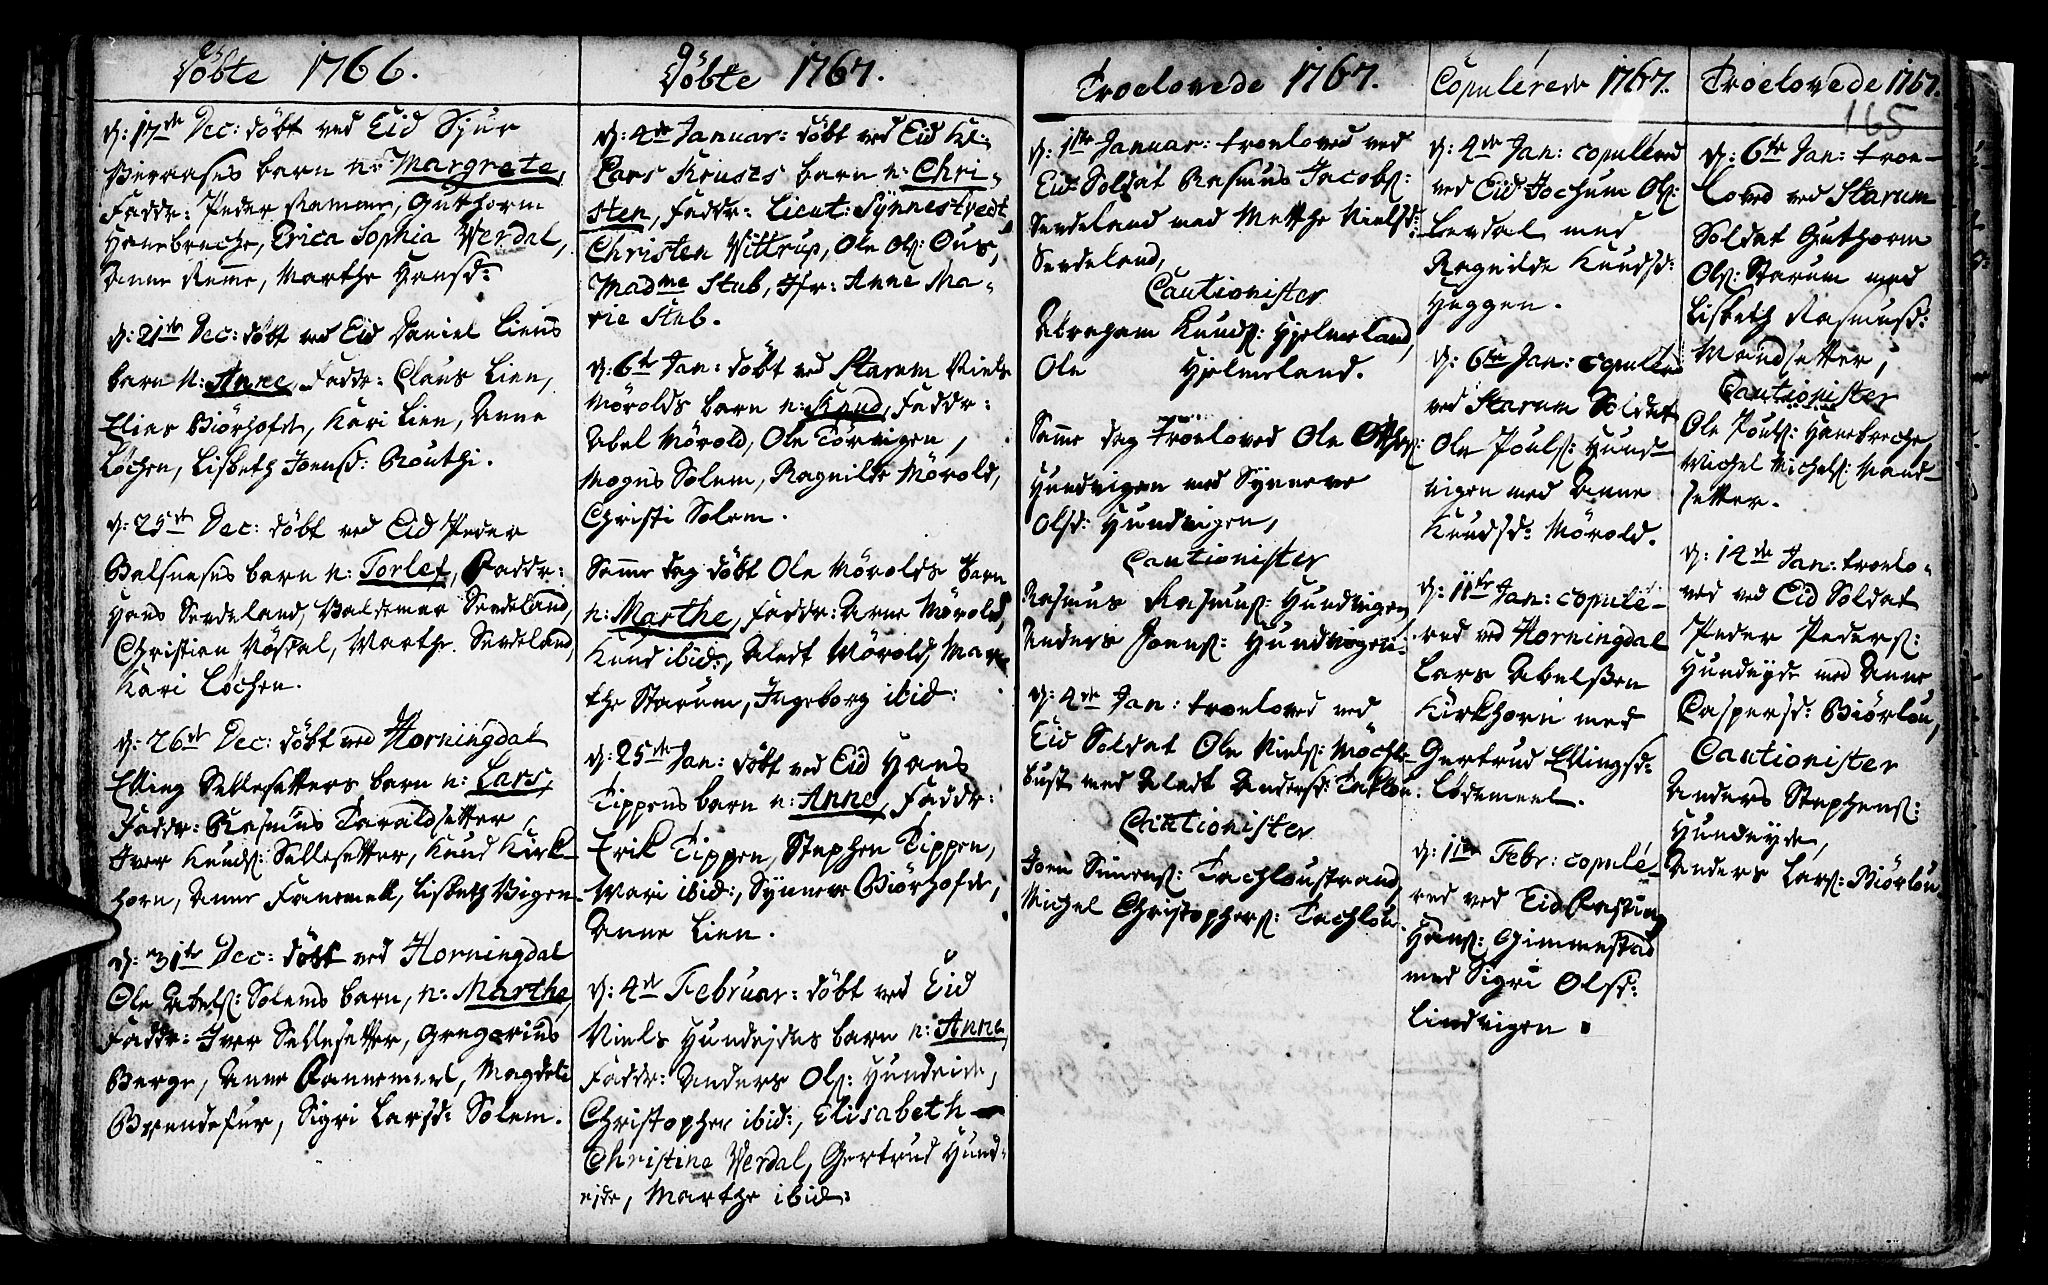 Döbte 1766.
d: 17de Dec: döbt ved Eid Sjur
barn n: Margrete,
Faddr: Peder Ramme, Guthorm
Hanebreche, Erica Sophia Verdal,
Anne Reme, Marthe Hansd:
d: 21de Dec: döbt ved Eid Daniel Liens
barn N: Anne, Faddr: Claus Lien,
Elias Biörhofde, Kari Lien, Anne
Löchen, Lisbeth Joensd: Routhi.
d: 25de Dec: döbt ved Eid Peder
barn n: Torlef, Faddr:
Hans Sendeland, Baldemar Sendeland,
Christian Vöstal, Marthe Sendeland,
Kari Löchen.
d: 26de Dec: döbt ved Horningdal
Elling Sellesetters barn n: Lars,
Faddr: Rasmus Taraldsetter,
Iver Knuds: Sellesetter, Knud Kirk-
horn, Anne Fanemell, Lisbeth Vigen
d: 31te Dec: döbt ved Horningdal
Ole Abels: Solems barn, n: Marthe,
Faddr: Iver Sellesetter, Gregorius
Berge, Anne Fannemeel, Magdeli
Brendefur, Sigri Larsd: Solem.
Döbte 1767.
d: 4de Januar: döbt ved Eid Kl:
Lars Kruses barn n: Chri-
sten, Faddr: Lieut: Synnestvedt
Christen Vittrup, Ole Ols: Ous,
Madme Stub, Jfr: Anne Ma-
rie Stub.
d: 6te Jan: döbt ved Starum Niels
Mörolds barn n: Knud, Faddr:
Abel Mörold, Ole Torvigen,
Mogns Solem, Ragnilde Mörold,
Christi Solem.
Samme dag döbt Ole Mörolds barn
n: Marthe, Faddr: Arne Mörold,
Knud ibid:, Aledt Mörold, Mar-
the Starum, Ingeborg ibid:
d: 25de Jan: döbt ved Eid Hans
Tippens barn n: Anne, Faddr:
Erik Tippen, Stephen Tippen,
Mari ibid:, Synneve Biörhofde,
Anne Lien.
d: 4de Februar: döbt ved Eid
Niels Hundejdes barn n: Anne
Faddr: Anders Ols: Hundeide,
Christopher ibid:, Elisabeth
Christine Verdal, Gertrud Hund-
ejde, Marthe ibid:
Troelovede 1767.
d: 1ste Januar: troeloved ved
Eid Soldat Rasmus Jacobs:
Sendeland med Metthe Nielsd:
Sendeland,
Cautionister
Abraham Knuds: Hjelmeland,
Ole Hjelmeland.
Samme dag troeloved Ole
Hundvigen med Synneve
Olsd: Hundvigen,
Cautionister
Rasmus Rasmus: Hundvigen,
Anders Joens: Hundvigen.
d: 4de Jan: troeloved ved
Eid Soldat Ole Niels: Mochle-
bust med Aledt Andersd: Taklou.
Cautionister
Joen Simens: Tachloustrand,
Michel Christophers: Tachlou.
Copulérede 1767.
d: 4de Jan: copuléred
ved Eid Jochum Ols:
Levdal med
Ragnilde Knudsd:
Heggen.
d: 6te Jan: copuléred
ved Starum Soldat
Ole Pouls: Hund-
vigen med Anne
Knudsd: Mörold.
d: 11te Jan: copulé-
red ved Horningdal
Lars Abelssen
Kirkhorn med
Gertrud Ellingsd:
Lödemeel.
d: 11te Febr: copulé-
red ved Eid Rasmus
Hans: Gimmestad
med Sigri Olsd:
Lindvigen.
Troelovede 1767.
165
d: 6te Jan: troe-
loved ved Starum
Soldat Guthorm
Ols: Starum med
Lisbeth Rasmusd:
Maindsetter,
Cautionister
Ole Pouls: Hanebreche,
Michel Michels: Maind-
setter.
d: 14de Jan: troelo-
ved ved Eid Soldat
Peder Peders:
Hundejde med Anne
Caspersd: Biörlou,
Cautionister
Anders Stephens:
Hundejde,
Anders Lars: Biörlou.